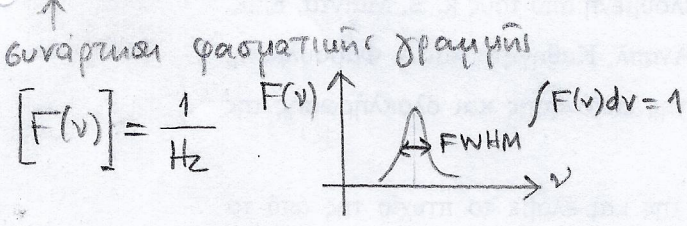 συνάρτηση φασματικής γραμμής
[F(ν)] = 1/Hz
F(ν)
FWHM
ν
∫F(ν)dν = 1